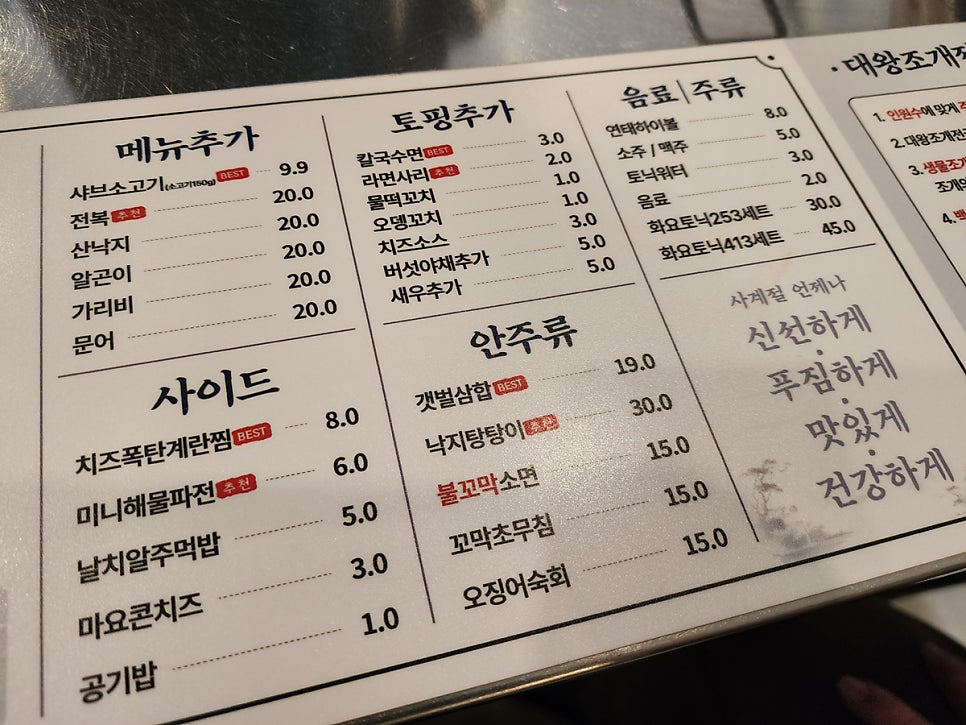 메뉴추가
샤브소고기(소고기150g) BEST 9.9
전복 추천 20.0
산낙지 20.0
알곤이 20.0
가리비 20.0
문어 20.0
사이드
치즈폭탄계란찜 BEST 8.0
미니해물파전 추천 6.0
날치알주먹밥 5.0
마요콘치즈 3.0
공기밥 1.0
토핑추가
칼국수면 BEST 3.0
라면사리 추천 2.0
물떡꼬치 1.0
오뎅꼬치 1.0
치즈소스 3.0
버섯야채추가 5.0
새우추가 5.0
안주류
갯벌삼합 BEST 19.0
낙지탕탕이 추천 30.0
불꼬막소면 15.0
꼬막초무침 15.0
오징어숙회 15.0
음료|주류
연태하이볼 8.0
소주 / 맥주 5.0
토닉워터 3.0
음료 2.0
화요토닉253세트 30.0
화요토닉413세트 45.0
사계절 언제나
신선하게
푸짐하게
맛있게
건강하게
·대왕조개
1. 인원수에 맞게
2. 대왕조개전
3. 생물조개
조개의
4.